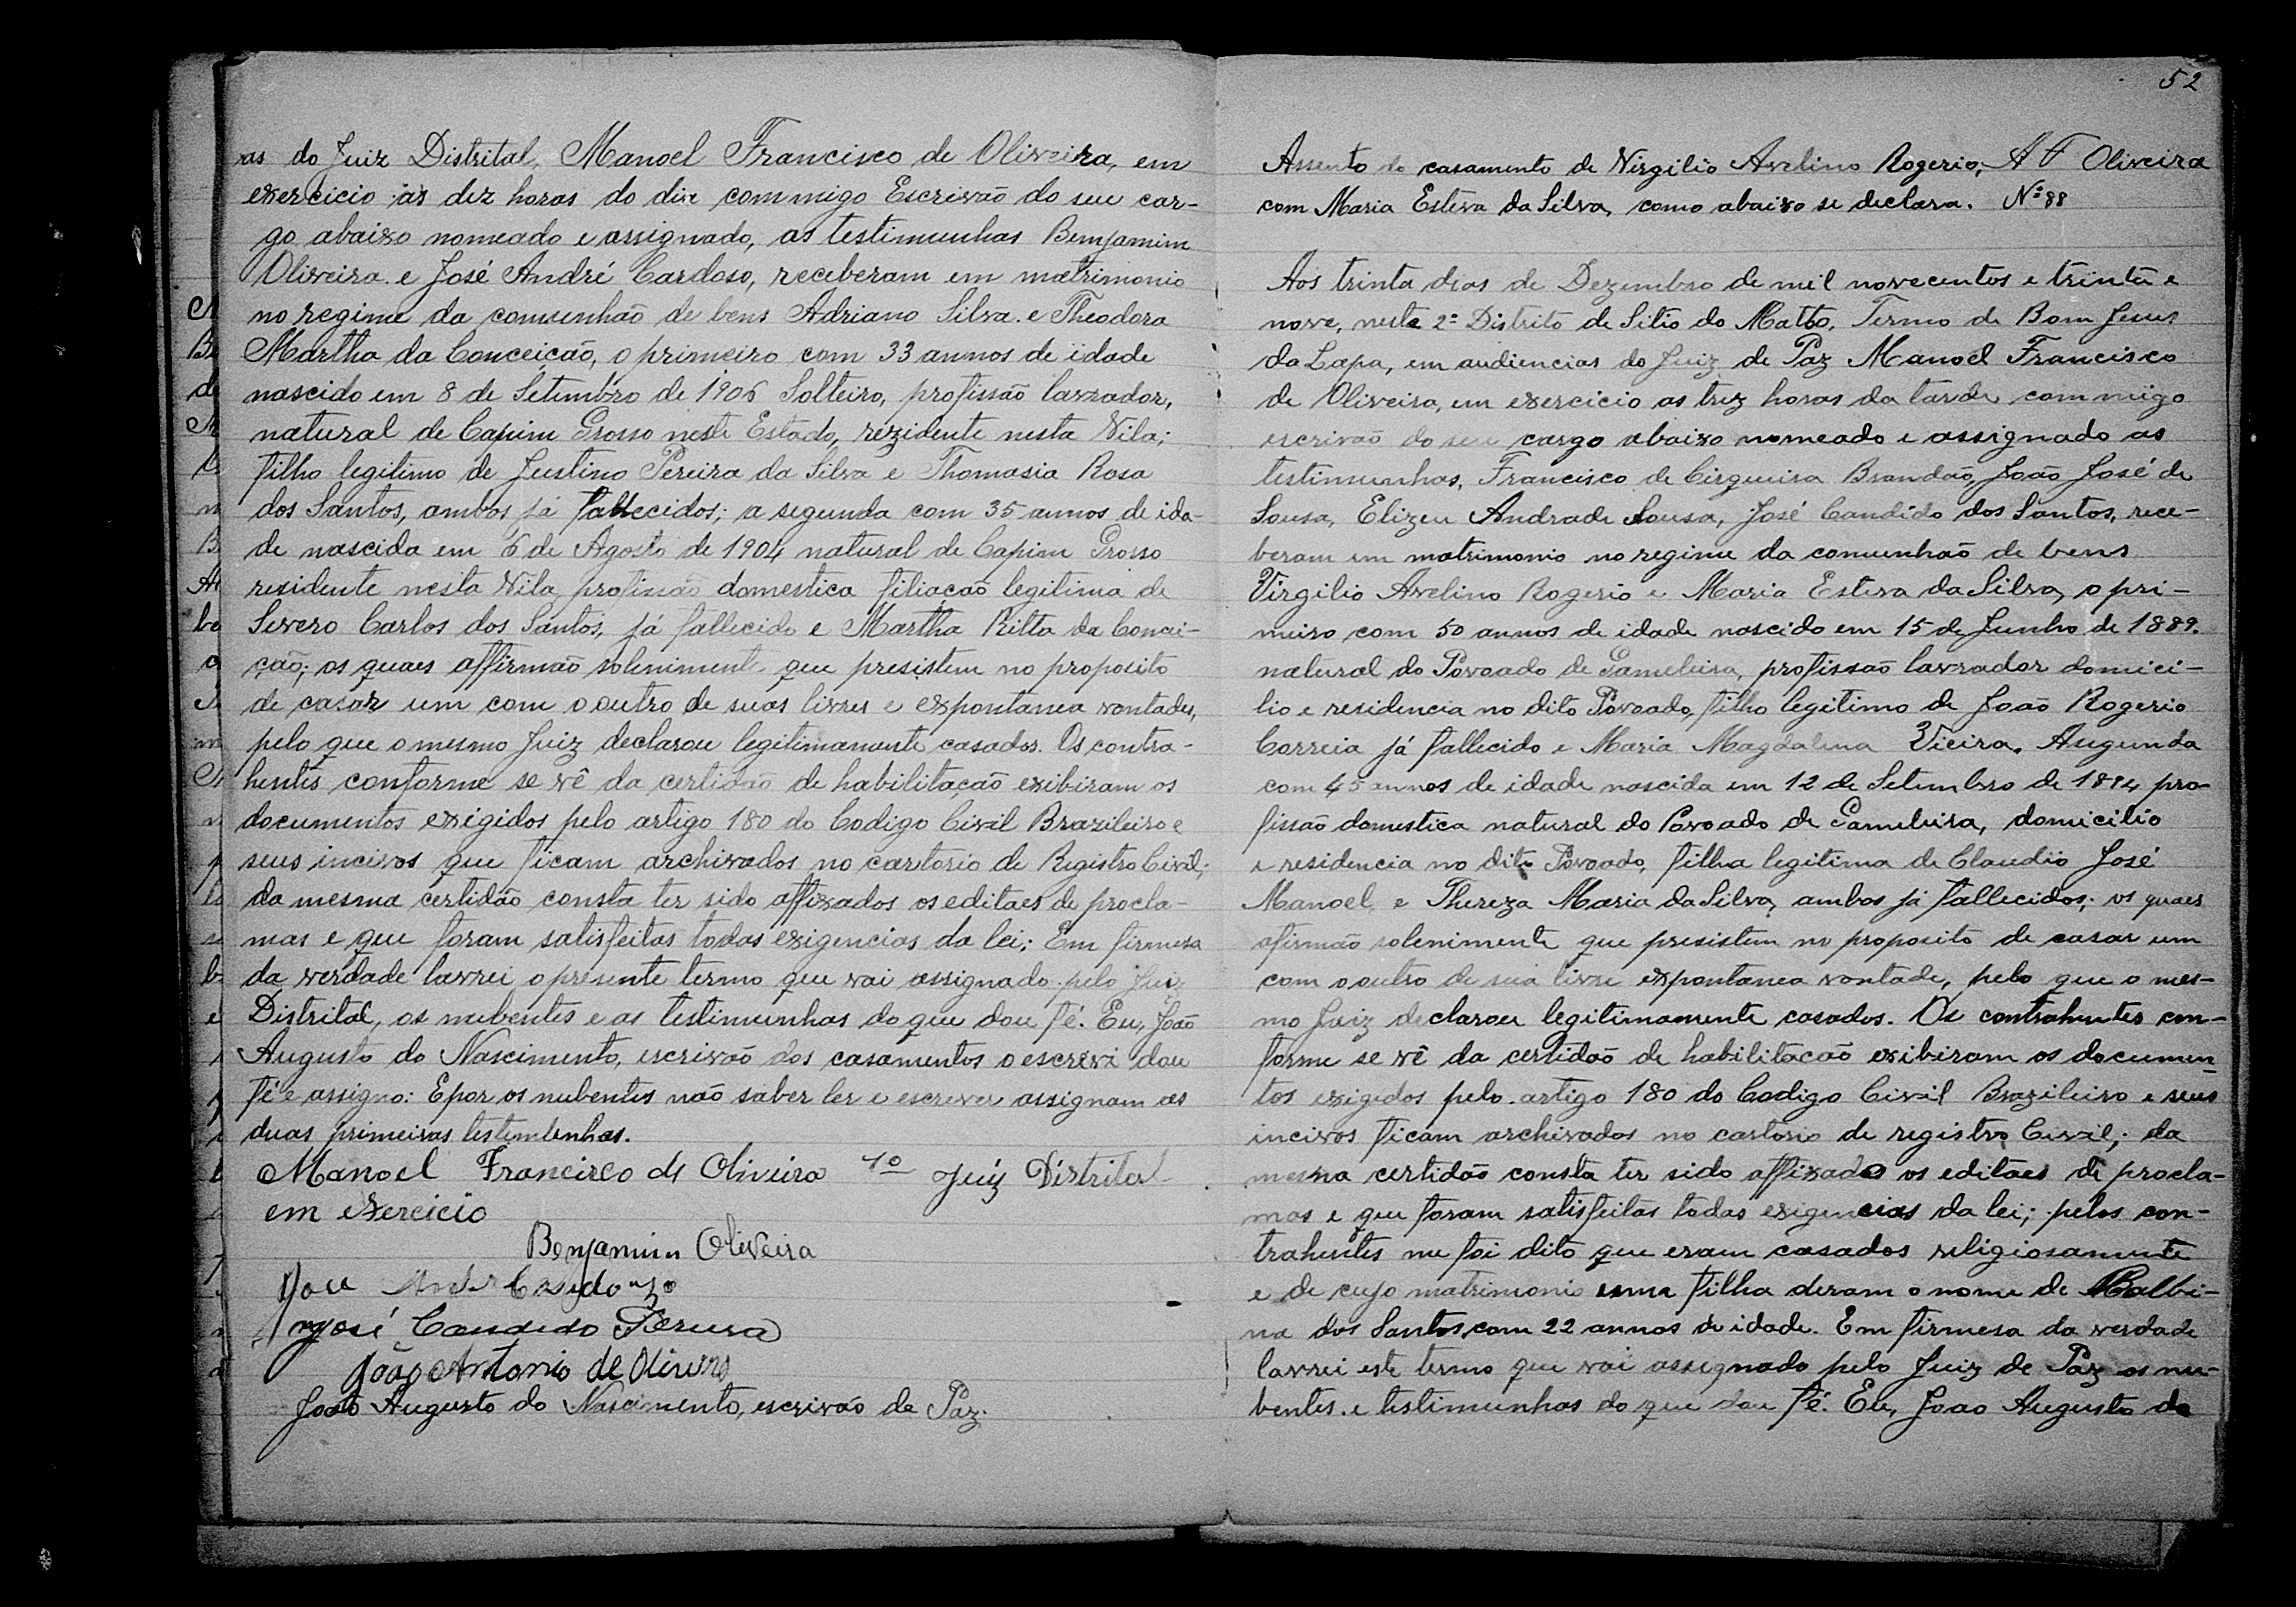 as do Juiz Distrital, Manoel Francisco de Oliveira, em
exercicio ás dez horas do dia commigo Escrivão do seu car-
go abaixo nomeado e assignado, as testimunhas Benjamim
Oliveira e José André Cardoso, receberam em matrimonio
no regime da comunhão de bens Adriano Silva e Theodora
Martha da Conceição, o primeiro com 33 annos de idade
nascido em 8 de Setembro de 1906 Solteiro, profissão lavrador,
natural de Capim Grosso neste Estado, rezidente nesta Vila;
filho legitimo de Justino Pereira da Silva e Thomasia Rosa
dos Santos, ambos já fallecidos; a segunda com 35 annos de ida-
de nascida em 6 de Agosto de 1904 natural de Capim Grosso
residente nesta Vila profissão domestica filiação legitima de
Severo Carlos dos Santos, já fallecido e Martha Ritta da Concei-
ção; os quaes affirmão solenimente que presistem no proposito
de casar um com o outro de suas livres e expontanea vontades,
pelo que o mesmo Juiz declarou legitimamente casados. Os contra-
hentes conforme se vê da certidão de habilitação exibiram os
documentos exigidos pelo artigo 180 do Codigo Civil Brazileiro e
seus incivos que ficam archivados no cartorio de Registro Civil;
da mesma certidão consta ter sido affixados os editaes de procla-
mas e que foram satisfeitas todas exigencias da lei; Em firmesa
da verdade lavrei o presente termo que vai assignado pelo Juiz
Distrital, os nubentes e as testimunhas do que dou fé. Eu, João
Augusto do Nascimento, escrivão dos casamentos o escrevi dou
fé e assigno: E por os nubentes não saber ler e escrever assignam as
duas primeiras testimunhas.
Manoel Francisco de Oliveira 1º Juiz Distrital
em exercicio
Benjamim Oliveira
José Candido Pereira
João Antonio de Oliveira
João Augusto do Nascimento, escrivão de Paz.
52
Assento do casamento de Virgilio Avelino Rogerio, A F Oliveira
com Maria Esteva da Silva, como abaixo se declara. Nº 88
Aos trinta dias de Dezembro de mil novecentos e trinta e
nove, neste 2º Distrito de Sitio do Matto, Termo de Bom Jesus
da Lapa, em audiencias do Juiz de Paz Manoel Francisco
de Oliveira, em exercicio as trez horas da tarde commigo
escrivão do seu cargo abaixo nomeado e assignado as
testimunhas, Francisco de Cirqueira Brandão, João José de
Sousa, Elizeu Andrade Sousa, José Candido dos Santos, rece-
beram em matrimonio no regime da comunhão de bens
Virgilio Avelino Rogerio e Maria Esteva da Silva, o pri-
meiro com 50 annos de idade nascido em 15 de Junho de 1889.
natural do Povoado de Gameleira, profissão lavrador domici-
lio e residencia no dito Povoado, filho legitimo de João Rogerio
Correia já fallecido e Maria Magdalena Vieira. Asegunda
com 45 annos de idade nascida em 12 de Setembro de 1894 pro-
fissão domestica natural do Povoado de Gameleira, domicilio
e residencia no dito Povoado, filha legitima de Claudio José
Manoel e Thereza Maria da Silva, ambos já fallecidos; os quaes
afirmão solenimente que presistem no proposito de casar um
com o outro de sua livre expontanea vontade, pelo que o mes-
mo Juiz declarou legitimamente casados. Os contrahentes con-
forme se vê da certidão de habilitação exibiram os documen-
tos exigidos pelo artigo 180 do Codigo Civil Brazileiro e seus
incivos ficam archivados no cartorio de registro Civil; da
mesma certidão consta ter sido affixados os editaes de procla-
mas e que foram satisfeitas todas exigencias da lei; pelos con-
trahentes me foi dito que eram casados religiosamente
e de cujo matrimonio uma filha deram o nome de Balbi-
na dos Santos com 22 annos de idade. Em firmesa da verdade
lavrei este termo que vai assignado pelo Juiz de Paz os nu-
bentes e testimunhas do que dou fé. Eu, Joao Augusto do